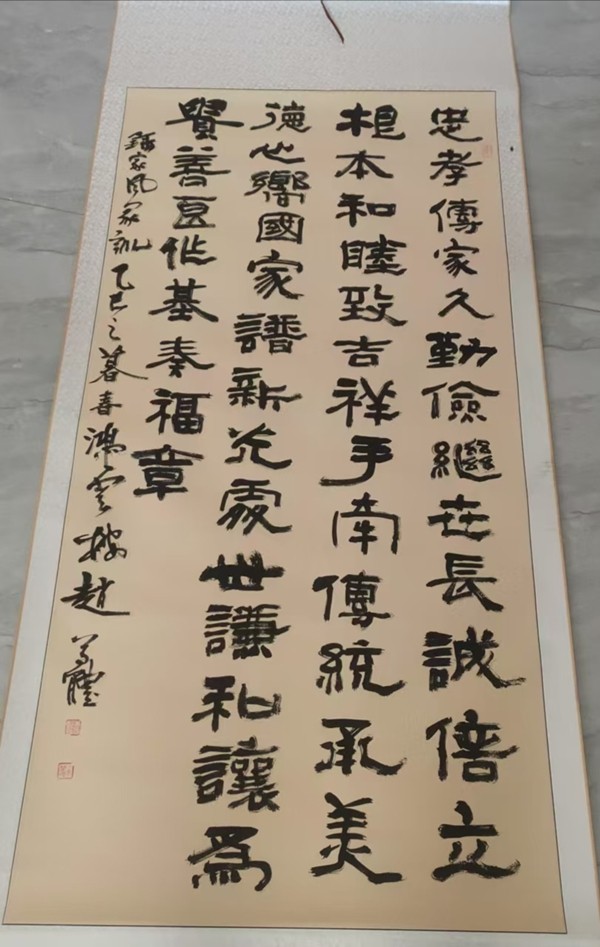 忠孝傳家久勤儉繼世長誠信立
根本和睦致吉祥手牽傳統承美
德心嚮國家譜新光處世謙和讓為
賢善作基奏福章
家風家訓乙巳之暮春鴻雲樓趙